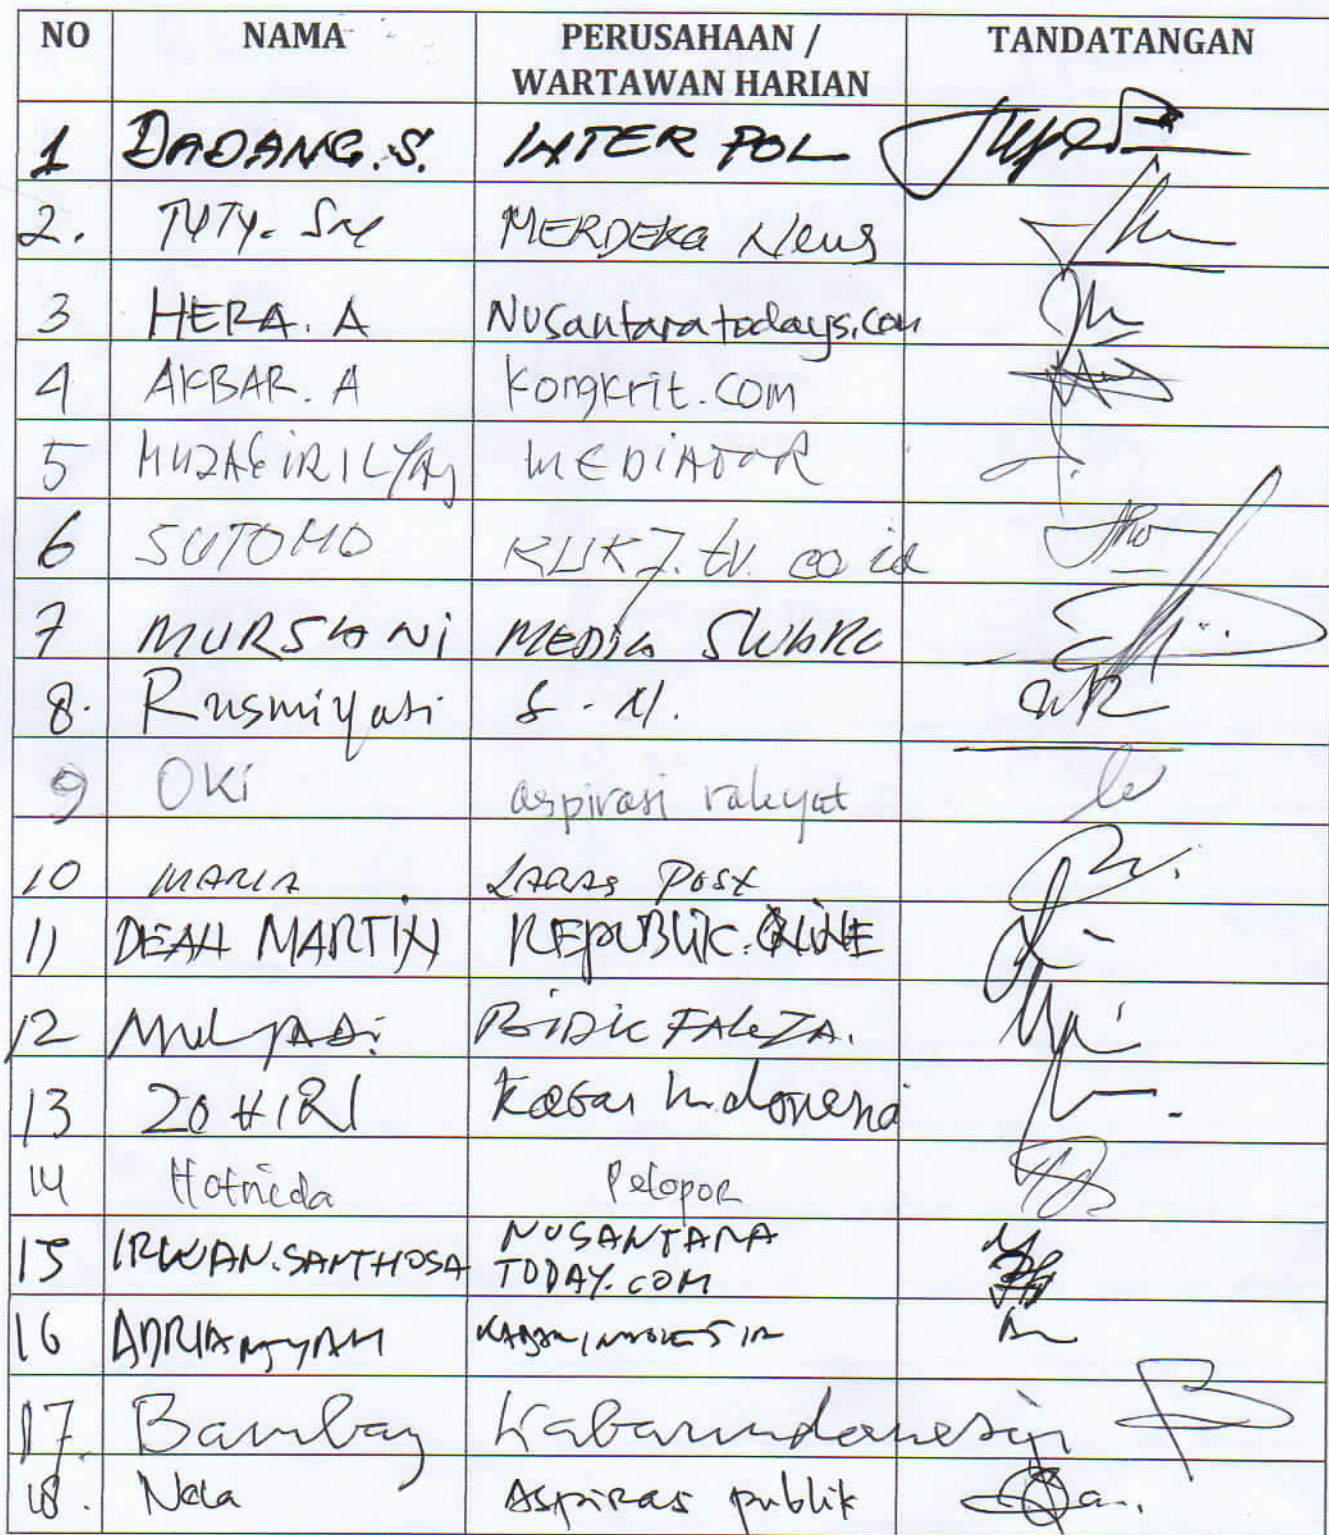 NO NAMA PERUSAHAAN / TANDATANGAN
WARTAWAN HARIAN
1 DADANG.S. INTER POL
2. TUTY. MERDEKA News
3 HERA. A Nusantaratodays.com
4 AKBAR. A Kongkrit.com
5 MEDIATOR
6 SUTOMO tv. co id
7 MURSIANI MEDIA
8. Rusmiyati S - N.
9 Oki aspirasi rakyat
10 MARIA LARAS POST
11 DEAN MARTIN REPUBLIK.ONLINE
12 MulyADi BiDiK
13 ZOHIRI Kabar Indonesia
14 Pelopor
15 IRWAN.SANTHOSA NUSANTARA
TODAY.COM
16 KABAR INDONESIA
17. Bambang Kabarindonesia
18. Nela Aspiras publik